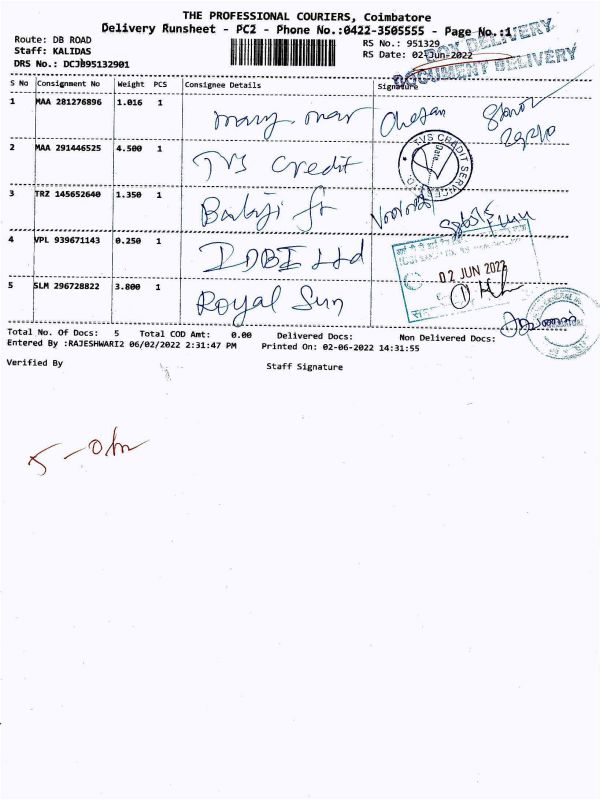 THE PROFESSIONAL COURIERS, Coimbatore
Delivery Runsheet - PC2 - Phone No.:0422-3505555 - Page No.:1
Route: DB ROAD
RS No.: 951329
Staff: KALIDAS
RS Date: 02-Jun-2022
DRS No.: DCJB95132901
BOX DELIVERY
DOCUMENT DELIVERY
S No Consignment No Weight PCS Consignee Details Signature
1 MAA 281276896 1.016 1
2 MAA 291446525 4.500 1 TVS Credit
TVS CREDIT SERVICES
3 TRZ 145652640 1.350 1 Balaji
4 VPL 939671143 0.250 1 IDBI Ltd
02 JUN 2022
5 SLM 296728822 3.800 1 Royal Sun
Total No. Of Docs: 5 Total COD Amt: 0.00 Delivered Docs: Non Delivered Docs:
Entered By :RAJESHWARI2 06/02/2022 2:31:47 PM Printed On: 02-06-2022 14:31:55
Verified By
Staff Signature